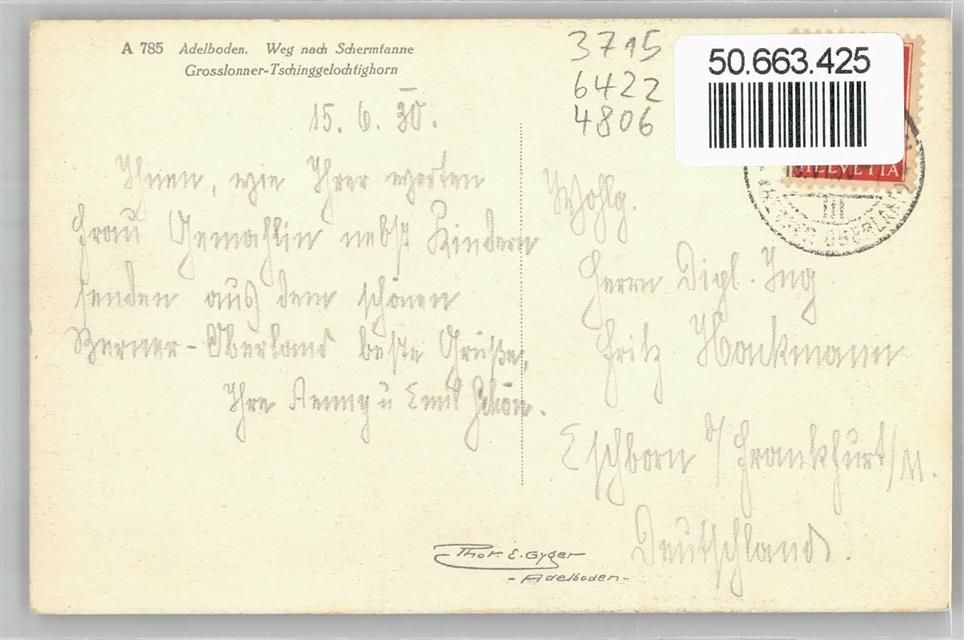 A 785 Adelboden. Weg nach Schermtanne
Grosslonner-Tschinggelochtighorn
3715
6422
4806
50.663.425
HELVETIA
15. 6. 30.
Ihnen, wie Ihrer werten
Frau Gemahlin nebst Kindern
senden aus dem schönen
Berner-Oberland beste Grüße,
Ihre Aenny u Emil Schön.
Wohlg.
Herrn Dipl. Ing
Fritz
Eschborn b/ Frankfurt/M.
Deutschland.
Phot. E. Gyger
- Adelboden -